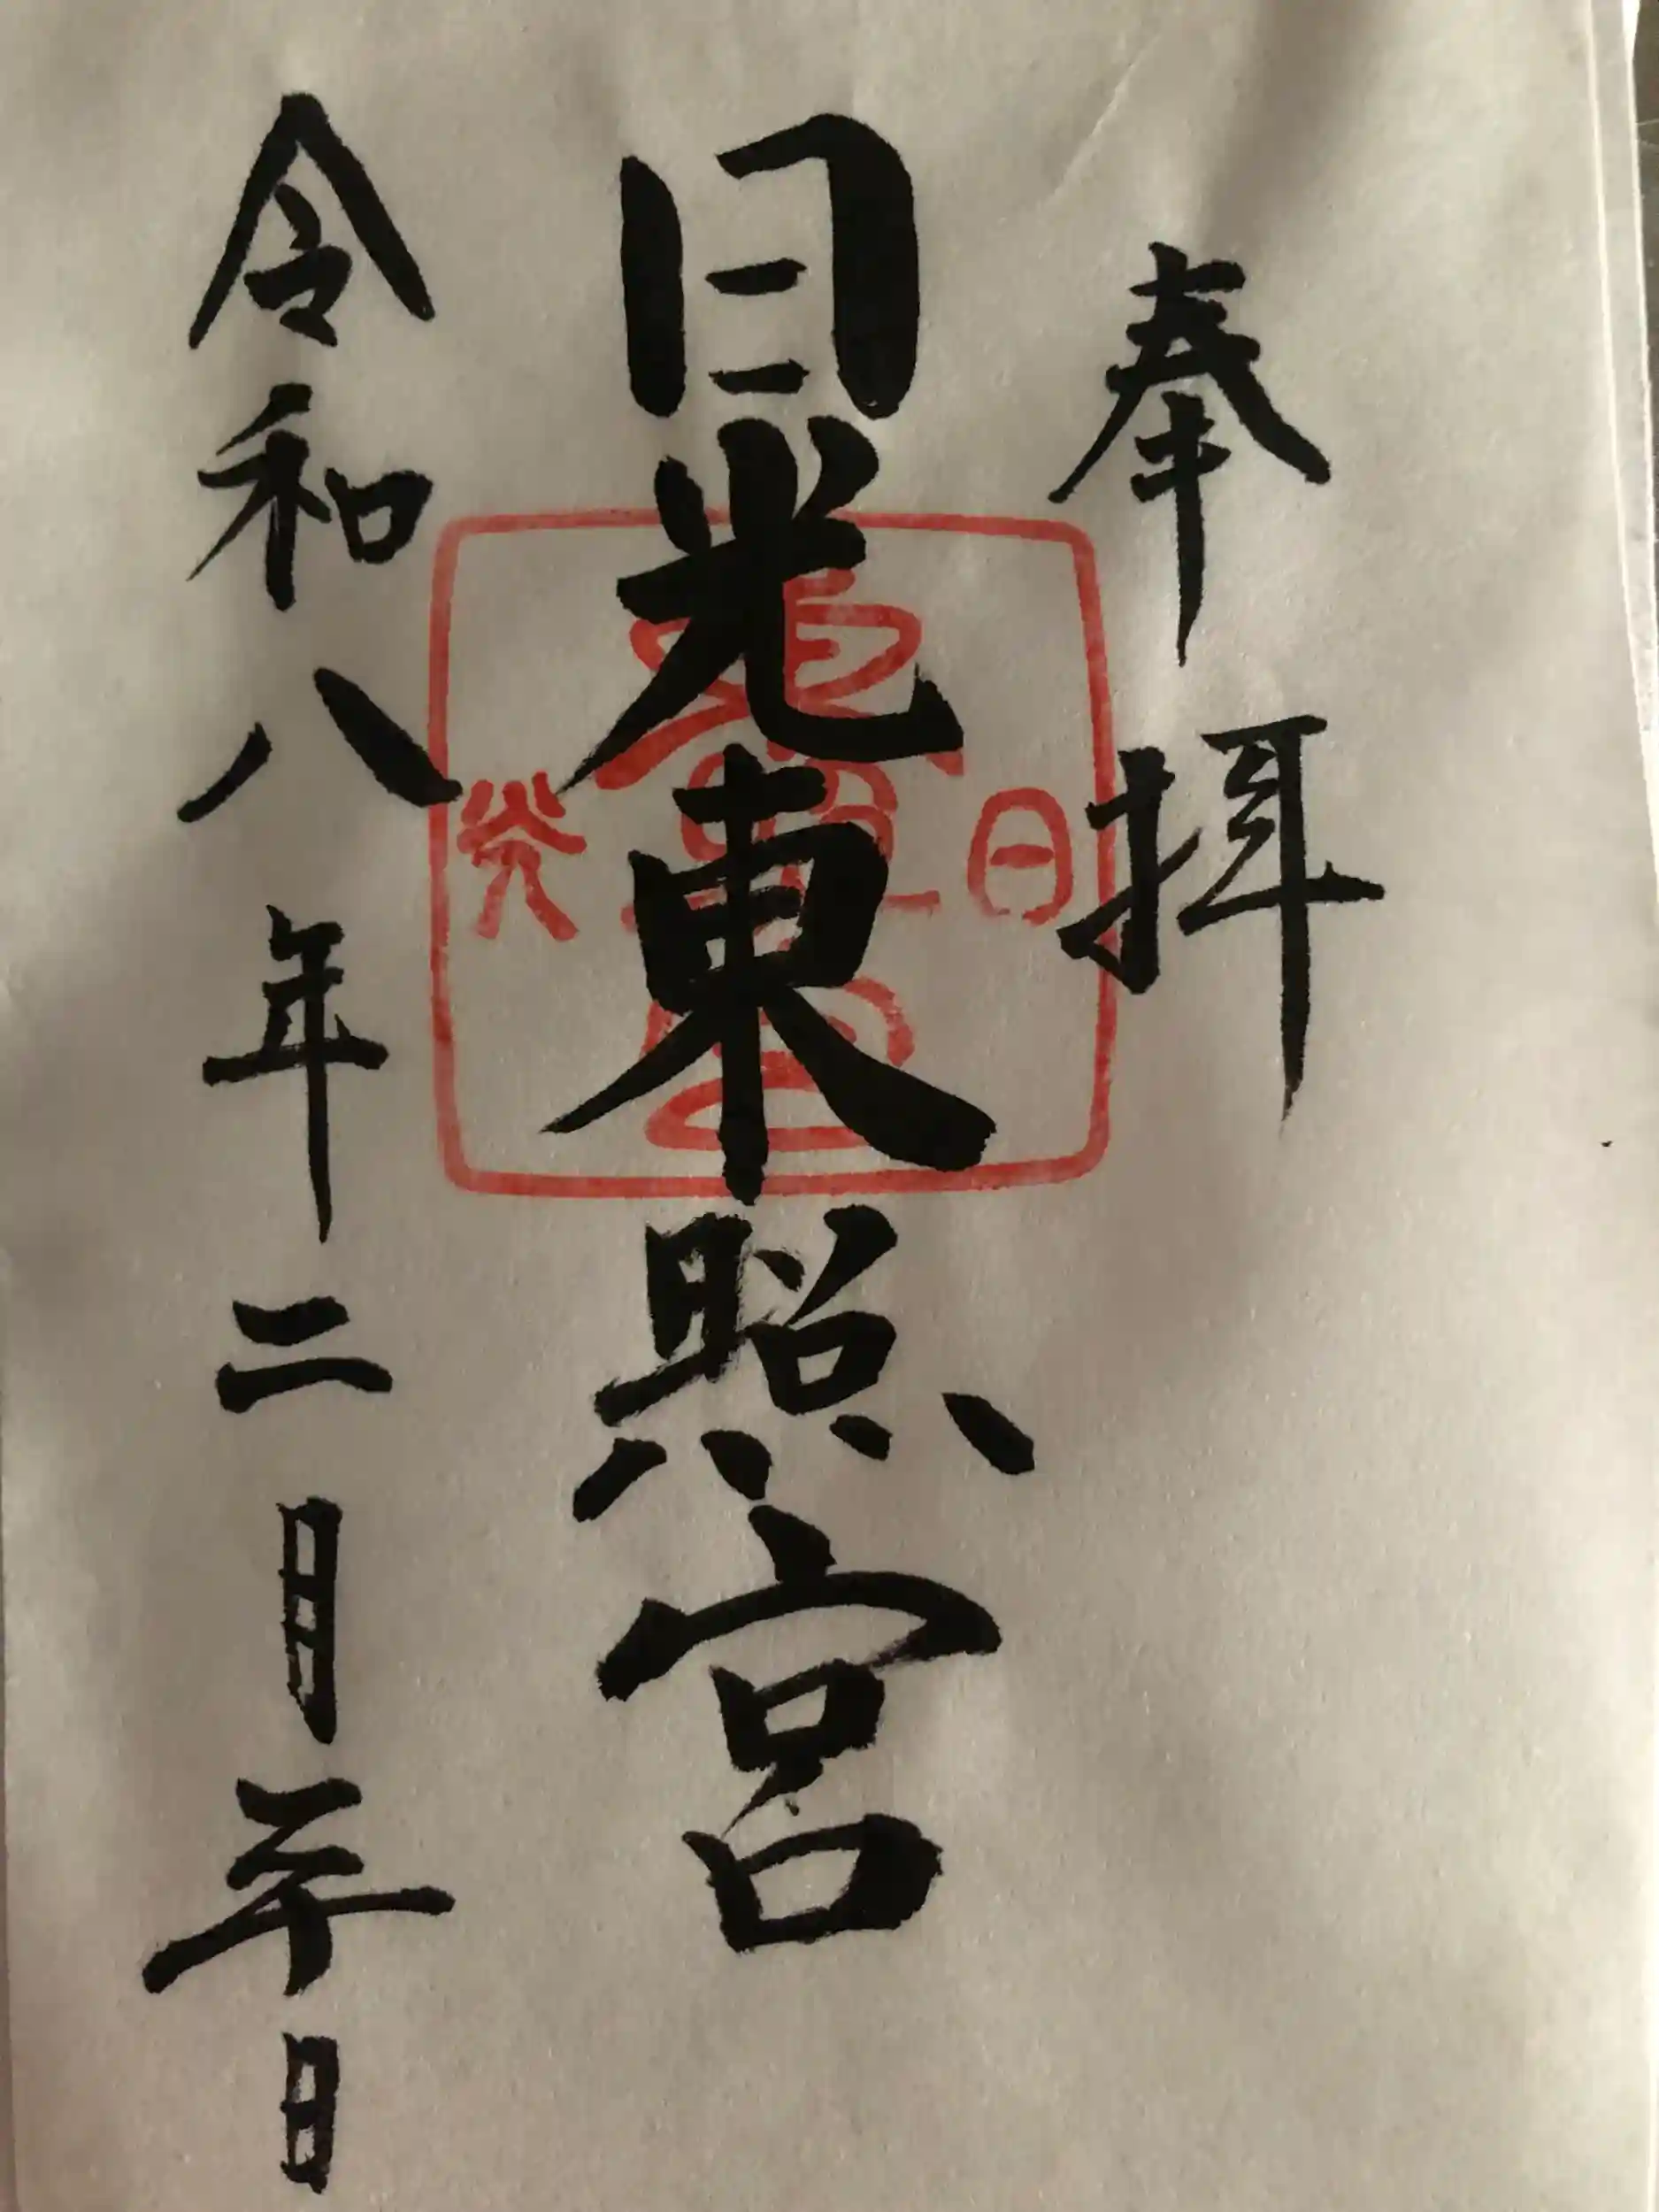 奉拝
日光東照宮
令和八年二月二十日
日
光